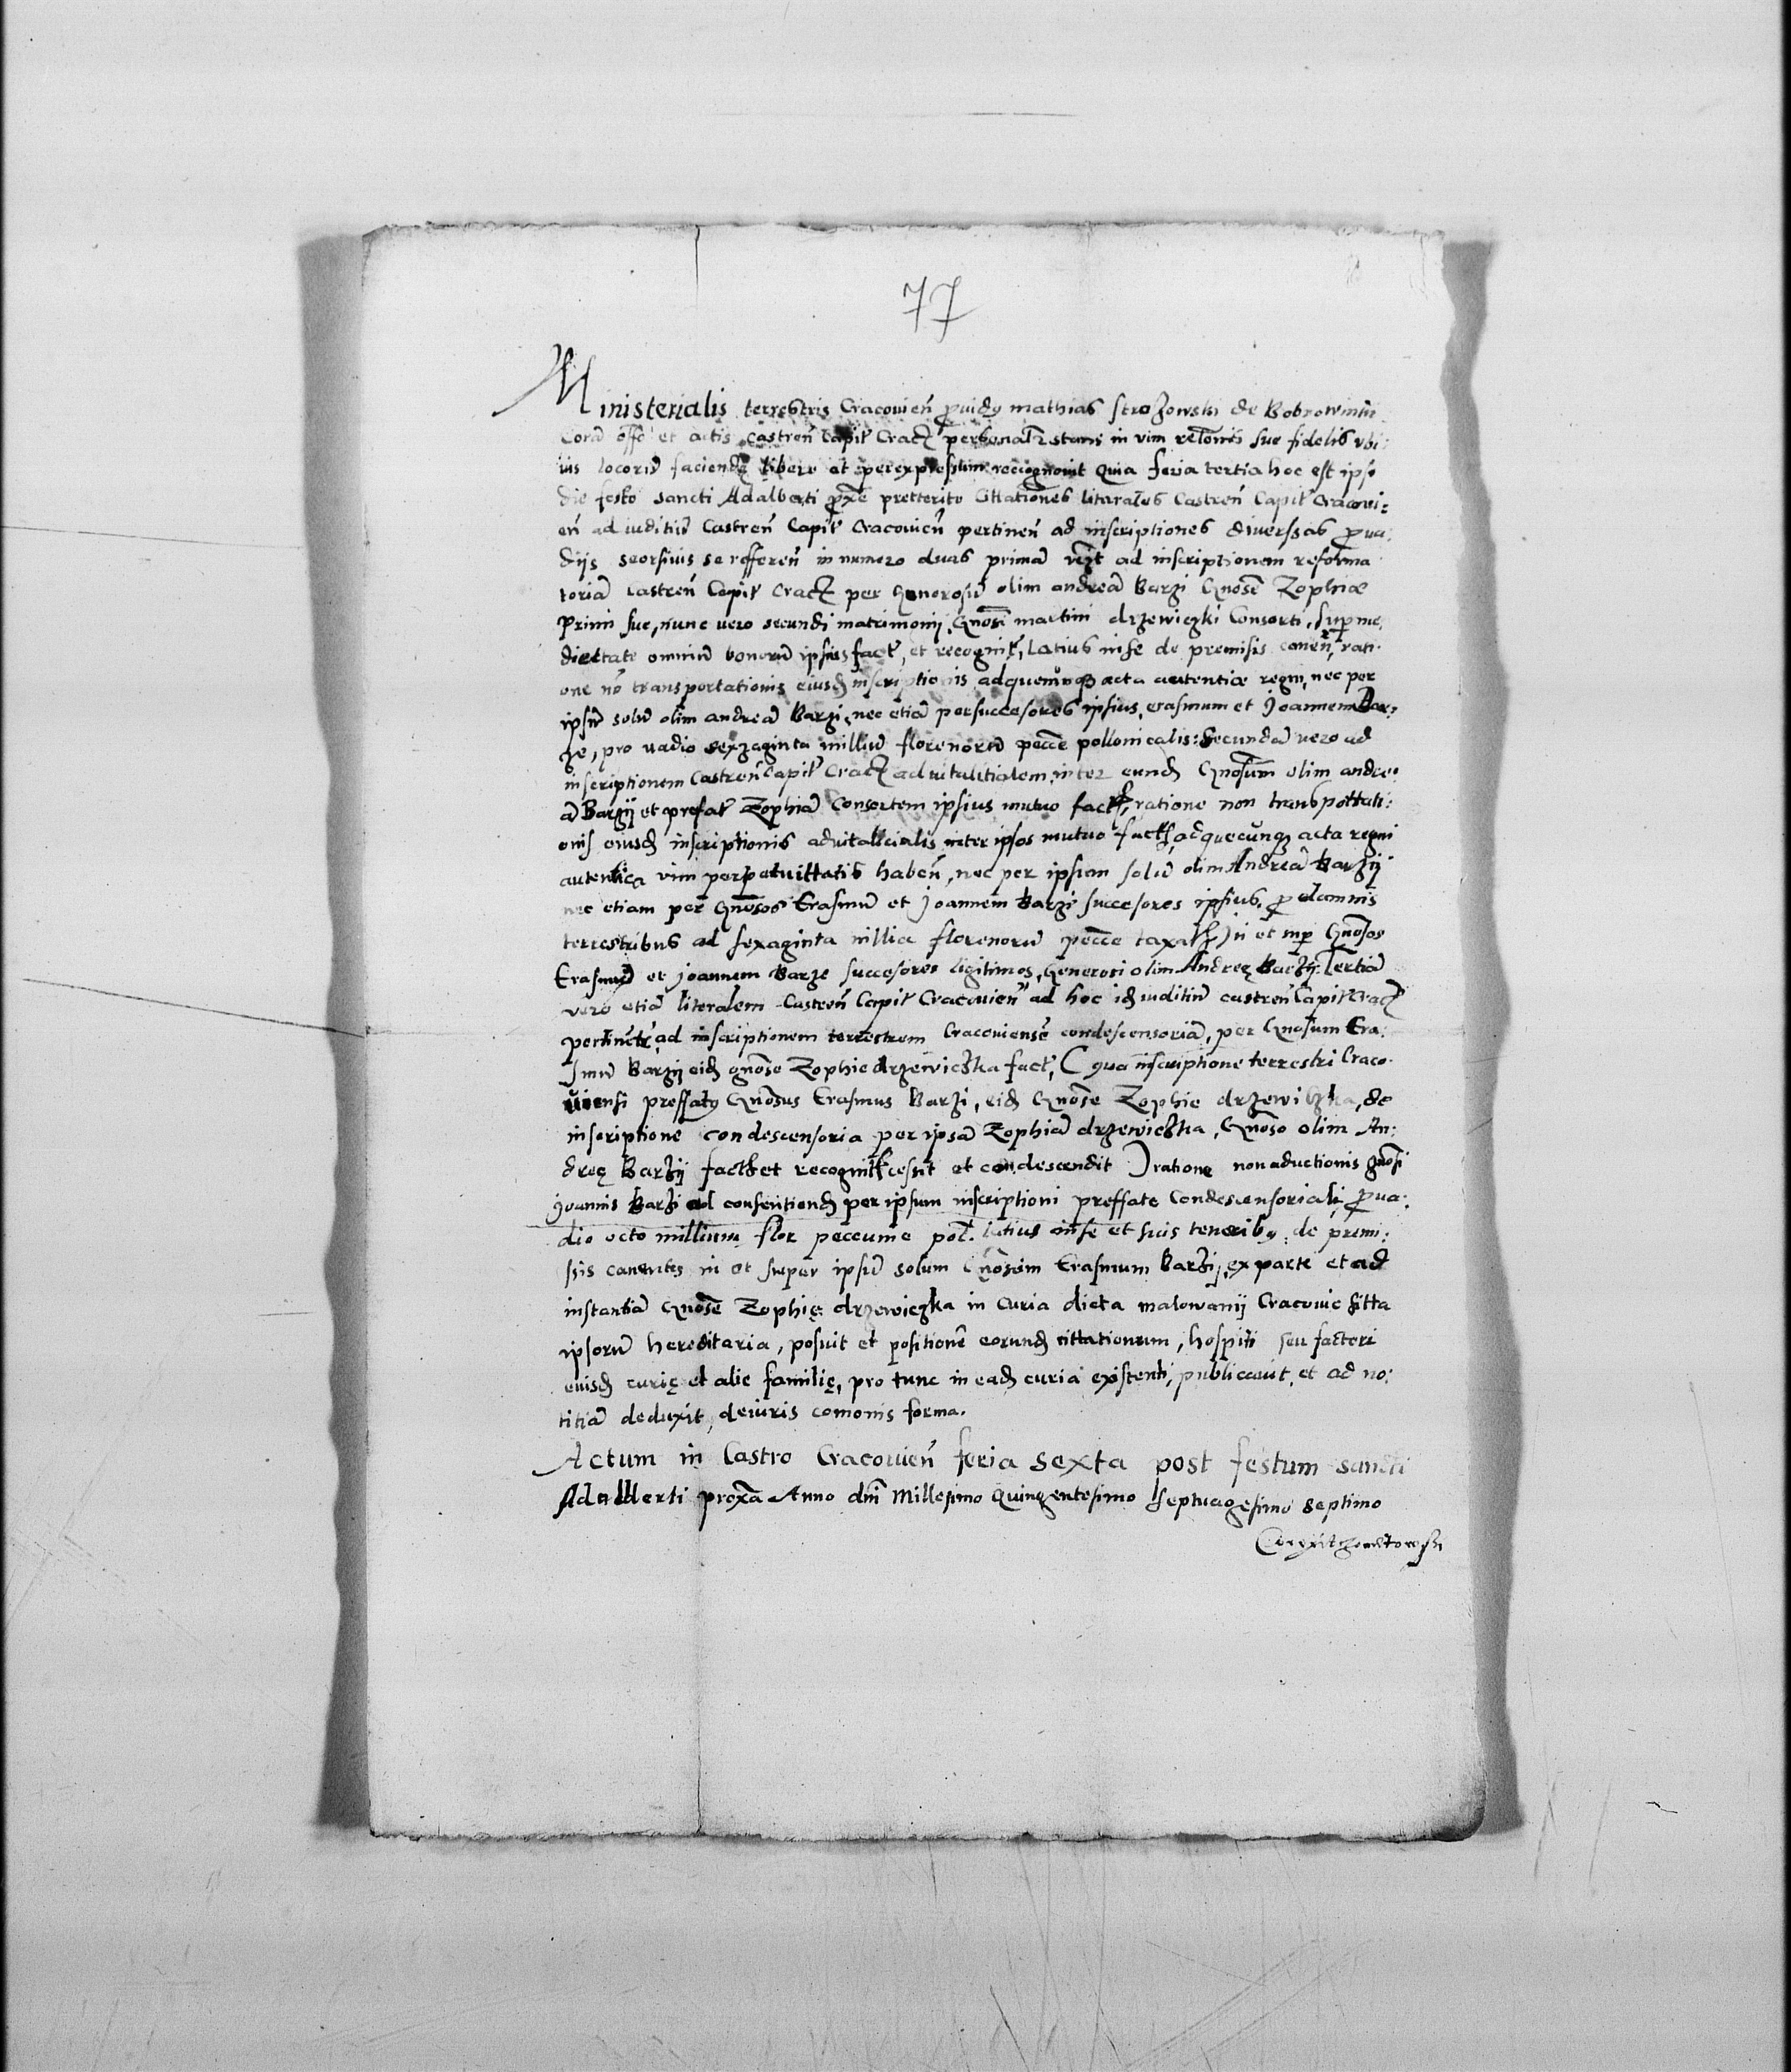 77
Ministerialis terrestris Cracovień ꝓvidꝯ mathias stroJowski de Bobrowniki
corā offō et actis castreń Capit̃ Crac̃ personal̃r stans in vim rel̃onis sue fidelis vbi:
uis locorū faciende libere et per expressum recognouit Quia feria tertia hoc est ipso
die festo sancti Adalberti ꝓxē pretterito Cittationes literales Castreń Capit̃ Cracovi:
eń ad iuditiū Castreń Capit̃ Cracovień pertineń ad inscriptiones diuerssas ꝓ va:
dijs seorsiuis se reffereń in numero duas primā vc̃zt ad inscriptionem reforma
toriā castreń Capit̃ Crac̃ per Generosū olim andreā Barzi Gnōse Zophiæ
primi sue, nunc vero secundi matrimonij Gnōsi martini drzewiczki Consorti, sup̱ me:
diettate omniū bonorū ipsius fact̃, et recognit̃, Latius in se de premisis caneń, rati.
one nō transportationis eiusd̃ inscriptionis adquecunqꝫ acta autenticæ regni, nec per
ipsū solū olim andreā Barzi, nec etiā per succesores ipsius, erasmum et Joannem Bar:
ze, pro vadio sexzaginta milliū florenorū pecc̃e pollonicalis: Secundā vero ad
inscriptionem Castreń Capit̃ Crac̃ aduitalitialem, inter eund̃ Gnōsum olim andre:
ā Barzij et prefat̃ Zophiā Consortem ipsius mutuo fact̃, ratione non transpottati:
onis eiusd̃ inscriptionis aduitalicialis inter ipsos mutuo fact̃, ad quecūnqꝫ acta regni
autentica vim perpetuittatis habeń, nec per ipsum solū olim Andreā Barzij
nec etiam per Gnōsos Erasmū et Joannem Barzi succesores ipsius, ꝓ damnis
terrestribus ad sexaginta millia florenorū pecc̃e taxat̃) in et sup̱ Gnōsos
Erasmū et Joannem Barze succesores ligitimos, Generosi olim Andreę Barzij. Tertiā
vero etiā literalem Castreń Capit̃ Cracovień ad hoc id̃ iuditiū castreń Capit̃ Crac̃
pertineńt, ad inscriptionem terrestrem Cracoviensē condescensoriā, per Gnōsum Era:
smū Barzij eid̃ gnōse Zophie drzewiczka fact̃, ( qua inscriptione terrestri Craco.
viensi preffatꝯ Gnōsus Erasmus Barzi, eid̃ Gnōse Zophie drzewiczka, de
inscriptione condescensoria per ipsā Zophiā drzewiczka, Gnōso olim An:
dreę Barzij fact̃ et recognit̃ cessit et condescendit ) ratione non aductionis gnōsi
Joannis Barzi ad consentiend̃ per ipsum inscriptioni preffate Condescensoriali ꝓ va:
dio octo millium flor peccume pol. latius in se et suis teneribꝯ, de premi:
ssis canentes in et super ipsū solum Gnōsum Erasmum Barzij, ex parte et ad
instantiā Gnōse Zophię drzewiczka in Curia dicta malowanij Cracovie sitta
ipsorū hereditaria, posuit et positionē eorund̃ cittationum, hospiti seu factori
eiusd̃ curię et alie familię, pro tunc in ead̃ curia existenti, publicauit, et ad no:
titiā deduxit, de iuris comonis forma.
Actum in Castro Cracovień feria sexta post festum sancti
Adalberti proxīa Anno dnī Millesimo Quingentesimo septuagesimo septimo